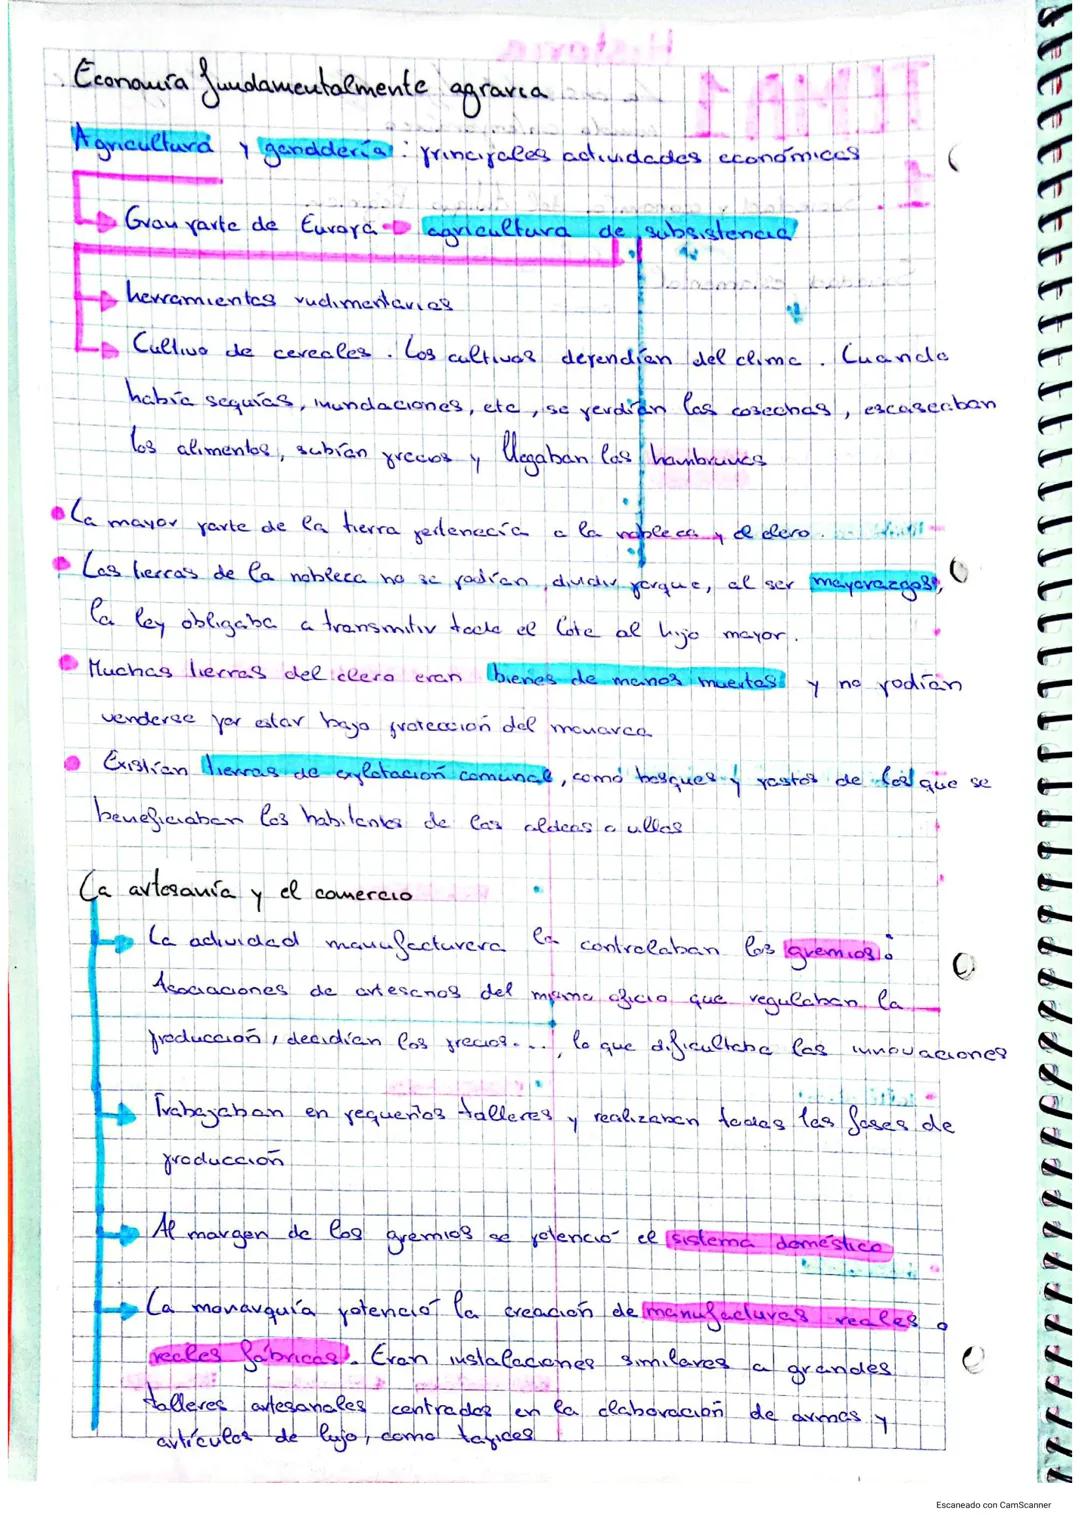 Economía fundamentalmente agraria
Agricultura y ganadería: principales actividades económicas
Gran parte de Europa agricultura de subsistencia
herramientas rudimentarias
Cultivo de cereales. Los cultivos dependían del clima. Cuando
había sequías, inundaciones, etc, se perdían las cosechas, escaseaban
los alimentos, subían precios y llegaban las hambrunas
La mayor parte de la tierra pertenecía a la nobleza y el clero.
Las tierras de la nobleza no se podían dividir porque, al ser mayorazgos,
la ley obligaba a transmitir todo el lote al hijo mayor.
Muchas tierras del clero eran bienes de manos muertas y no podían
venderse por estar bajo protección del monarca
Existían tierras de explotación comunal, como bosques y pastos de los que se
beneficiaban los habitantes de las aldeas o villas
La artesanía y el comercio
La actividad manufacturera la controlaban los gremios:
Asociaciones de artesanos del mismo oficio que regulaban la
producción, decidían los precios..., lo que dificultaba las innovaciones
Trabajaban en pequeños talleres y realizaban todas las fases de
producción
Al margen de los gremios se potenció el sistema doméstico
La monarquía potenció la creación de manufacturas reales o
reales fábricas. Eran instalaciones similares a grandes
talleres artesanales centrados en la elaboración de armas y
artículos de lujo, como tapices
Escaneado con CamScanner